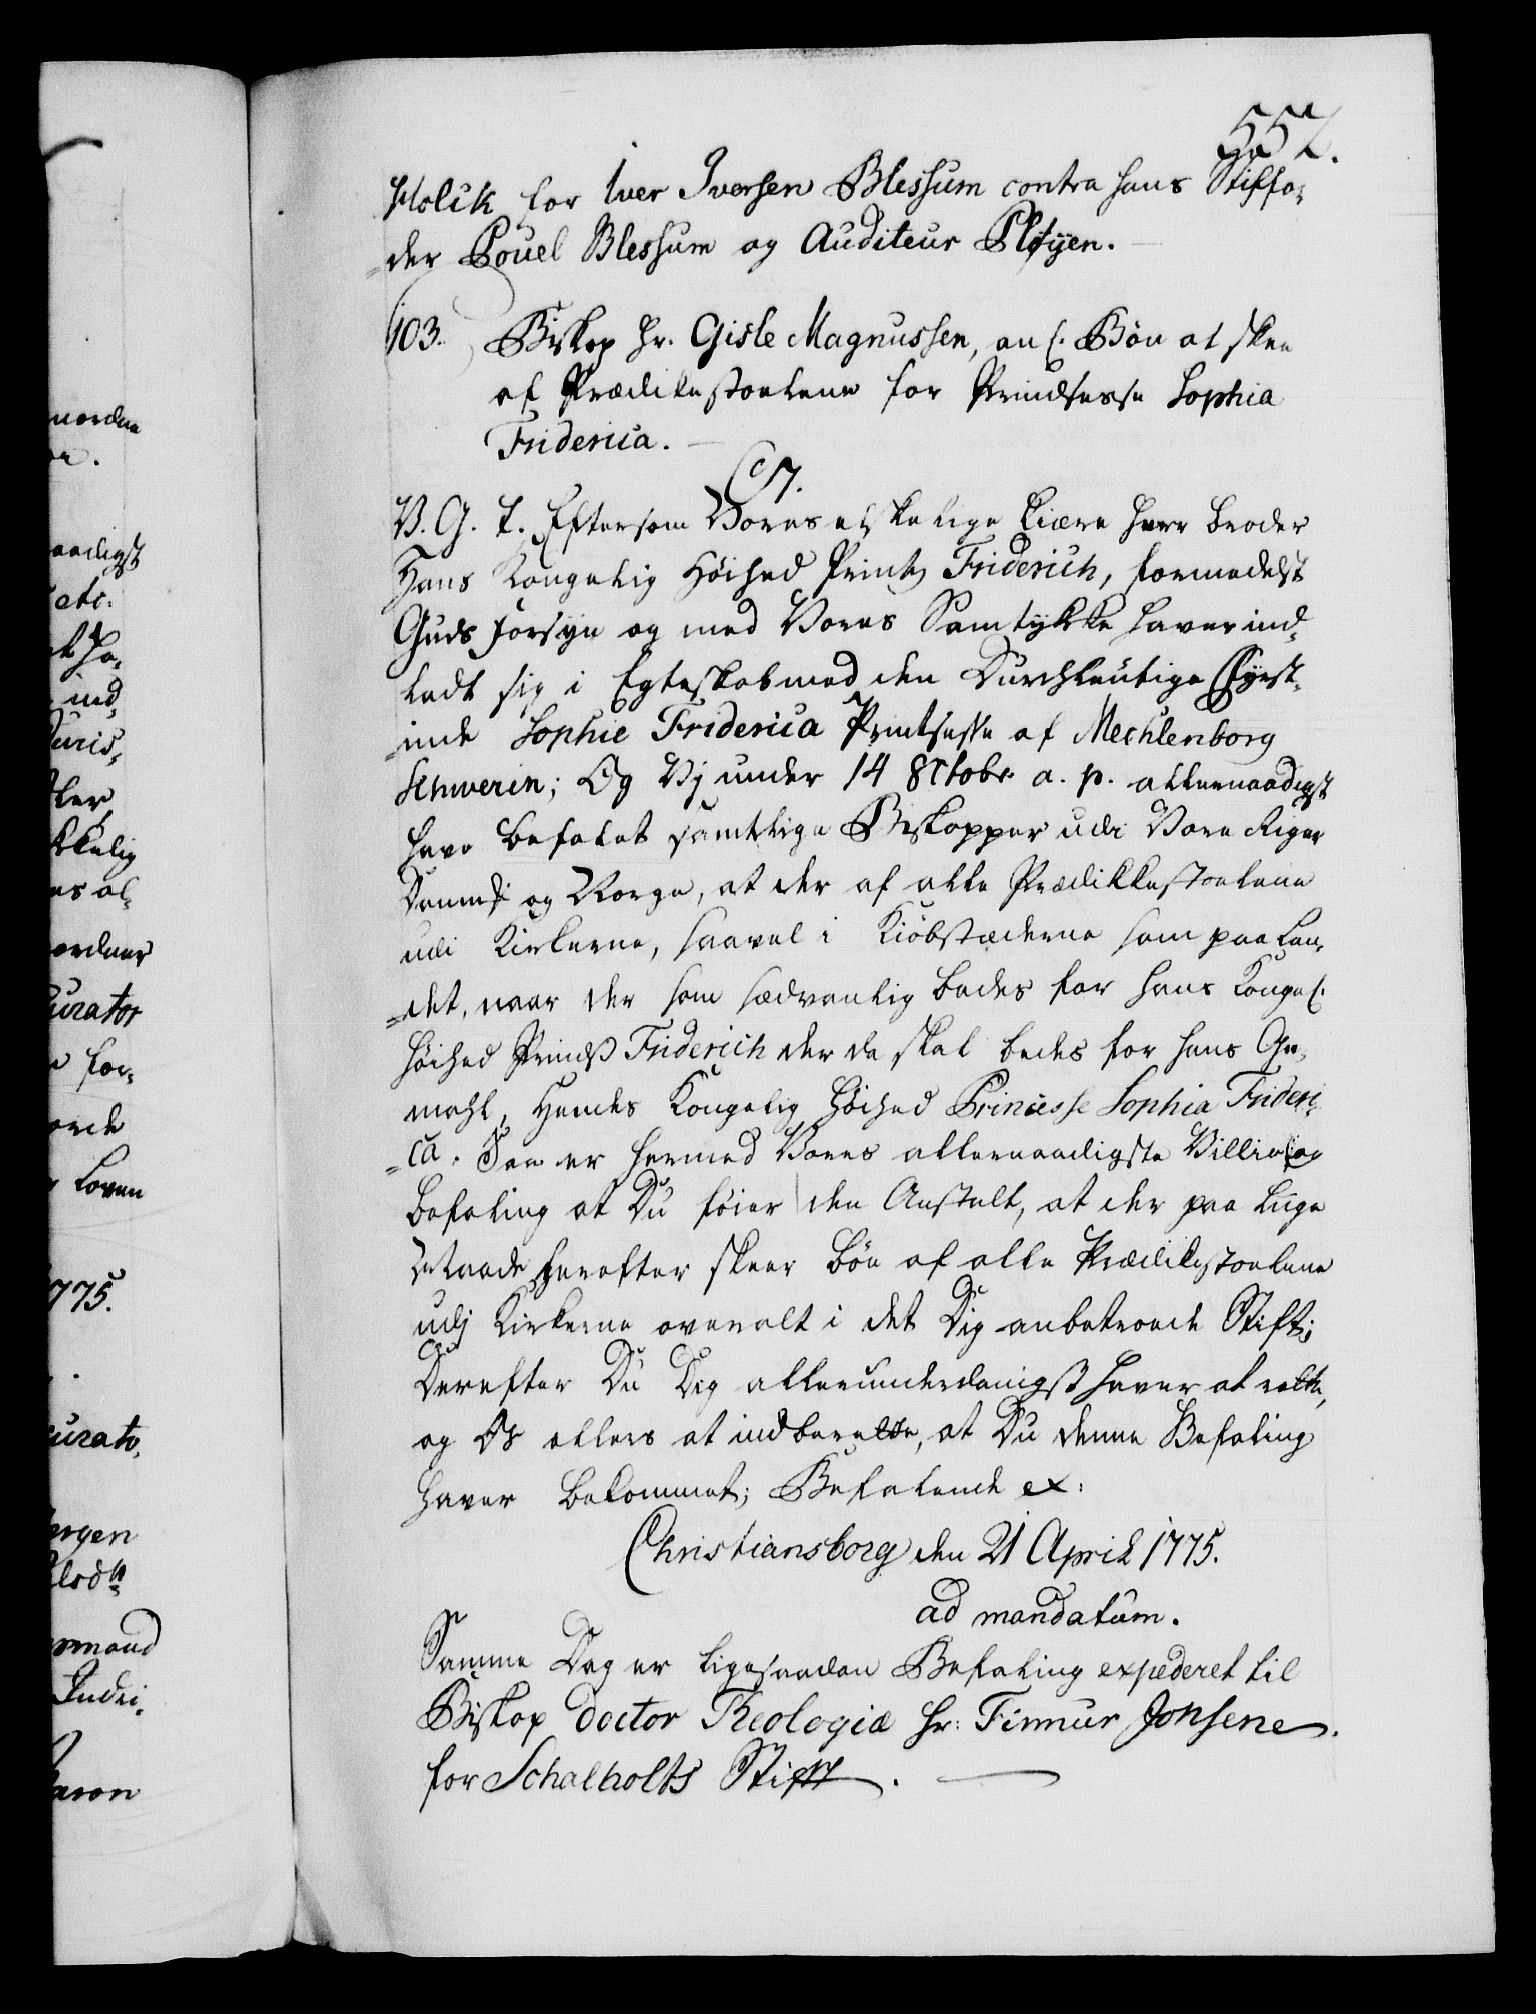 557.
Holck for Iver Iversen Blessum contra hans Stiffa-
der Pouel Blessum og Auditeur Pløyen.
103. Biskop Hr. Gisle Magnussen, an l. Bön at skee
af Prædikestoelene for Prindsesse Sophia
Friderica.
C7.
V. G. T. Eftersom Vores elskelige kiære Herr Broder
Hans Kongelig Höihed Printz Friderich, formedelst
Guds Forsyn og med Vores Samtykke haver ind-
ladt sig i Egteskab med den Durchleutige Fyrst-
inde Sophie Friderica Printsesse af Mechlenborg
Schwerin; Og Vj under 14 8tobr. a. p. allernaadigst
have befalet samtlige Biskopper udi Vore Riger
Danmk og Norge, at der af alle Prædikkestoelene
udi Kirkerne, saavel i Kiöbstæderne som paa Lan-
det, naar der som sædvanlig bedes for Hans Kongel.
Höihed Prinds Friderich der da skal bedes for hans Ge-
mahl, Hendes Kongelig Höihed Princesse Sophia Frideri-
ca. Saa er hermed Vores allernaadigste Villie og
Befaling at Du föier den Anstalt, at der paa liige
Maade herefter skeer Bön af alle Prædikestoelene
udj Kirkerne overalt i det Dig anbetroede Stift;
Derefter Du Dig allerunderdanigst haver at rette,
og Os ellers at indberette, at Du denne Befaling
haver bekommet; Befalende ex:
Christiansborg den 21 April 1775.
ad mandatum.
Samme Dag er ligesaadan Befaling expederet til
Biskop doctor Theologiæ Hr: Finnur Jonsene
for Schalholts Stift.